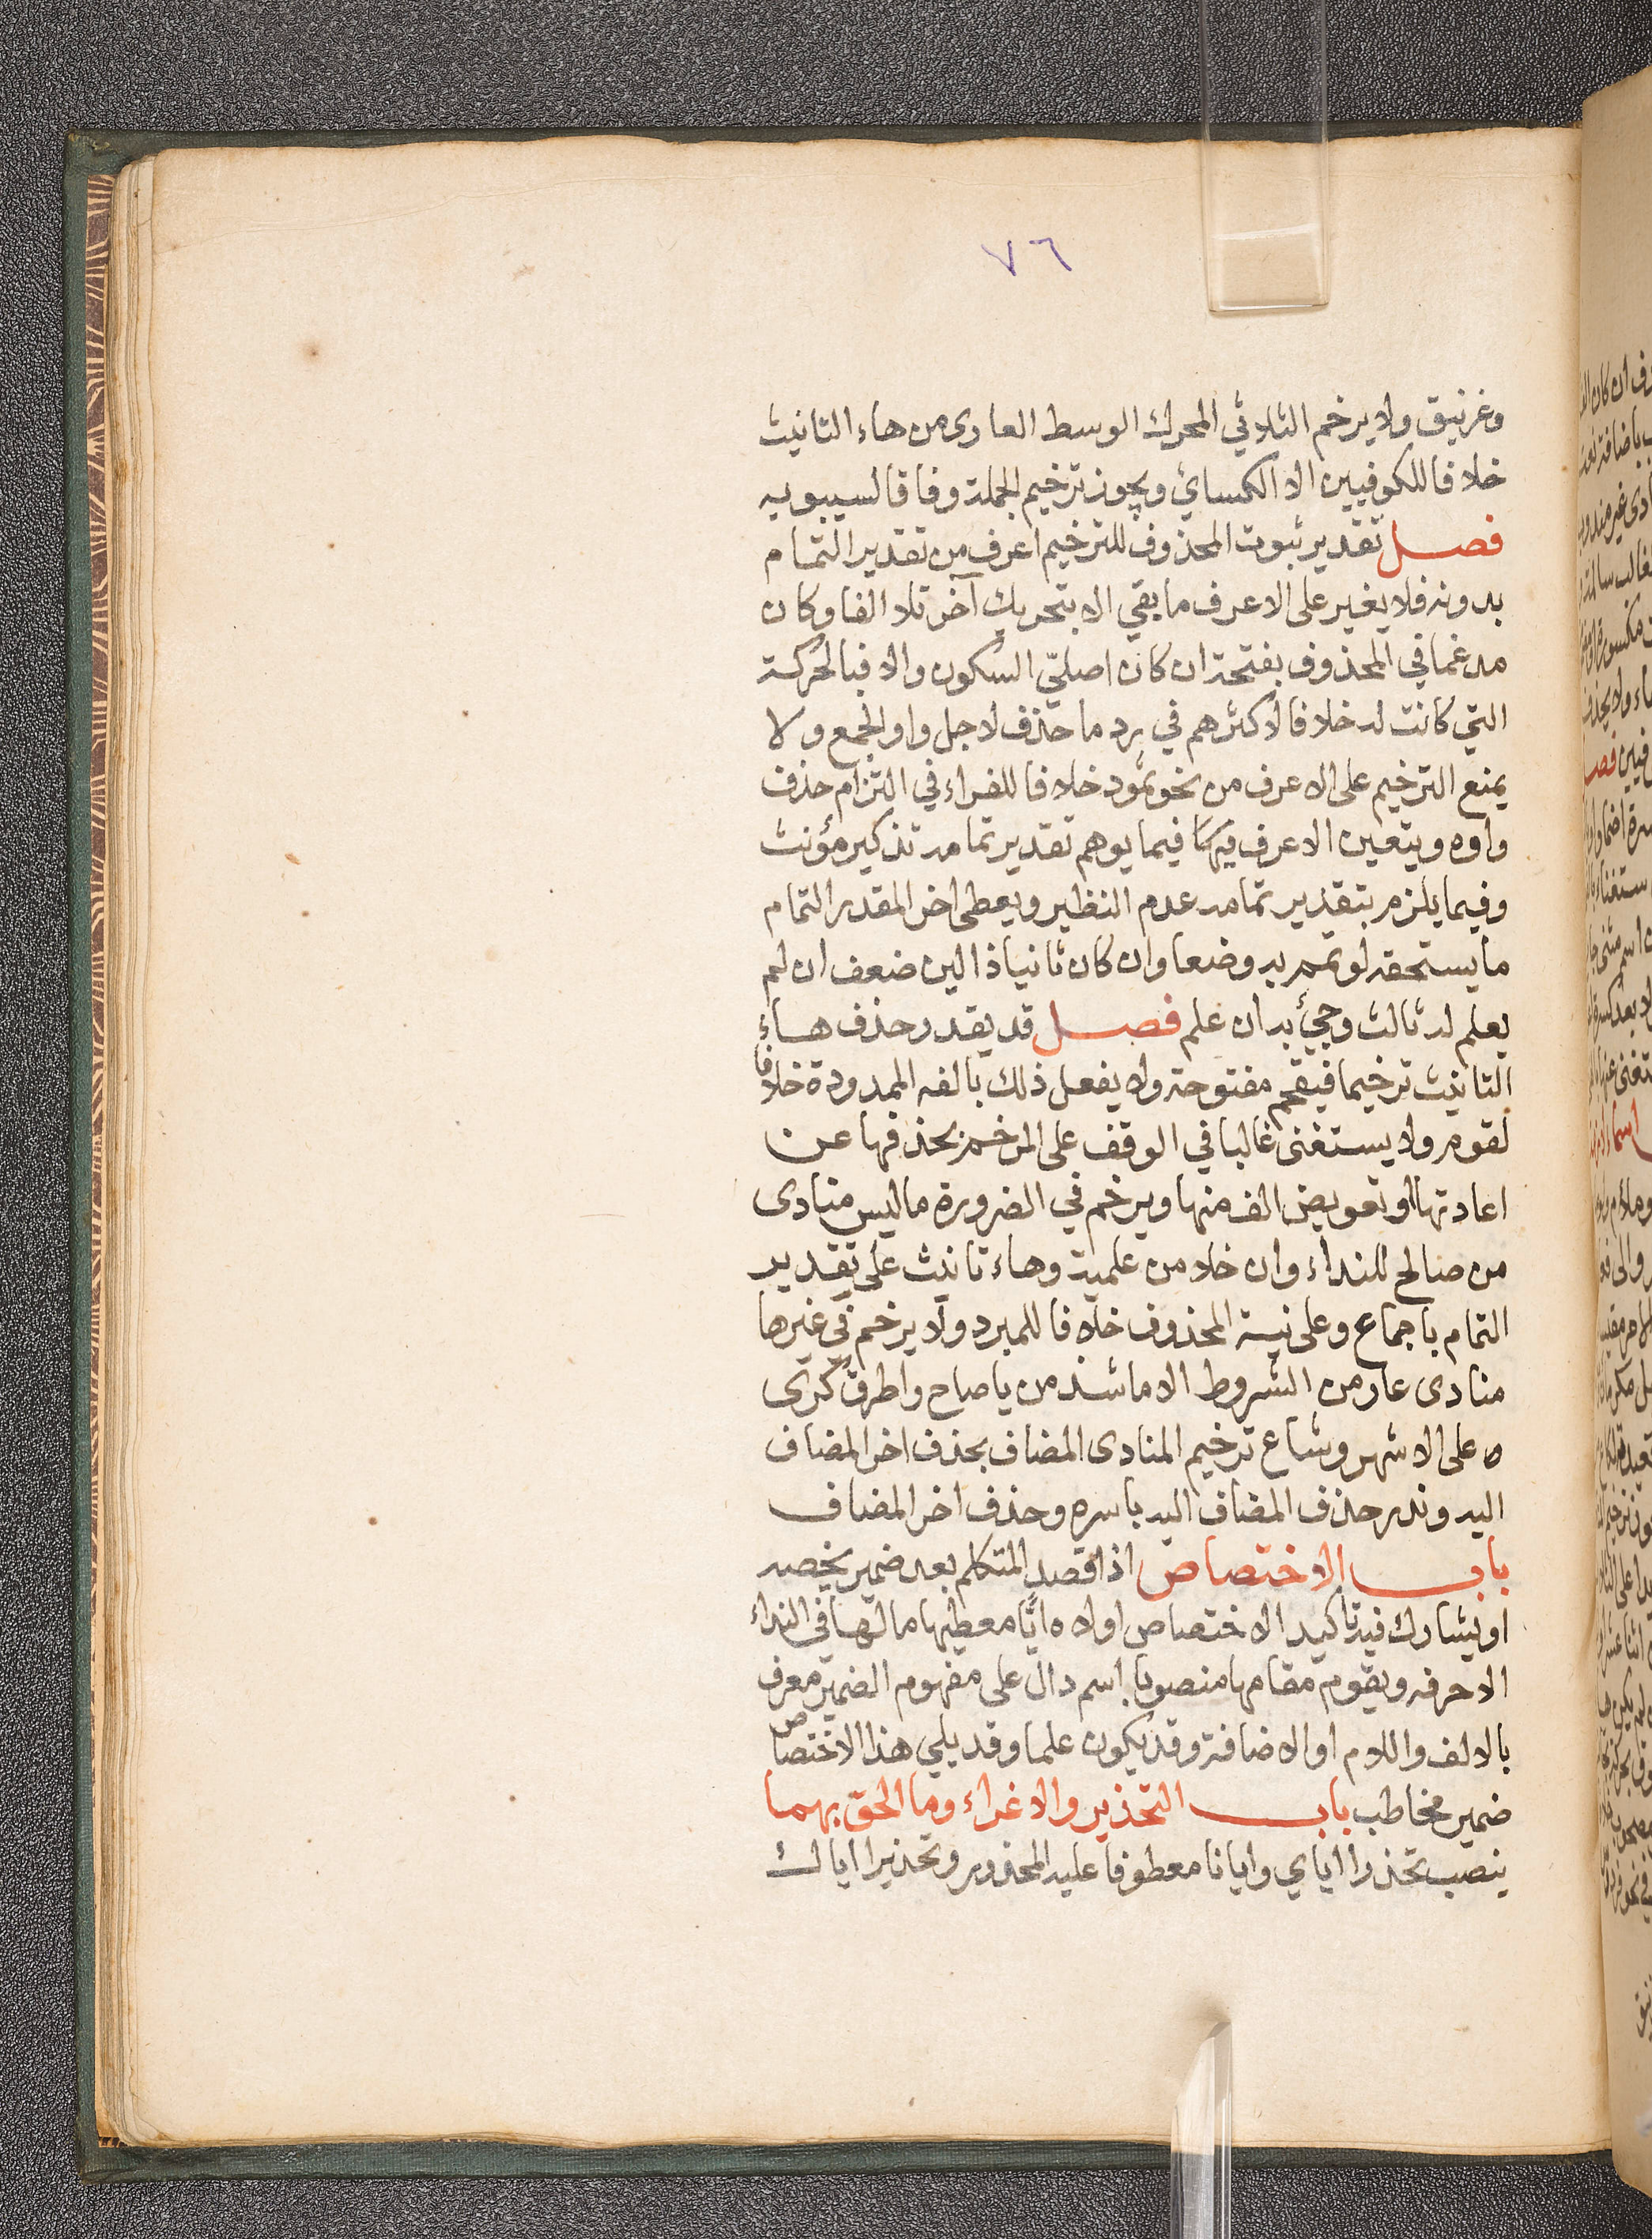 ٧٦
وغرنيق ولا يرخم الثلاثي المحرك الوسط العارى من هاء التانيث
خلافا للكوفيين الا الكسائي ويجوز ترخيم الجملة وفاقا لسيبويه
فصل تقدير ثبوت المحذوف للترخيم اعرف من تقدير التمام
بدونه فلا يغير على الاعرف ما بقي الا بتحريك آخر تلا الفا وكان
مدغما في المحذوف بفتحة ان كان اصليّ السكون والا فبالحركة
التي كانت له خلافا لاكثرهم في رد ما حذف لاجل واو الجمع ولا
يمنع الترخيم على الاعرف من نحو ثمود خلافا للفراء في التزام حذف
واوه ويتعين الاعرف فيهما فيما يوهم تقدير تمامه تذكير مؤنث
وفيما يلزم بتقدير تمامه عدم النظير ويعطى اخر المقدر التمام
ما يستحقه لو تمم به وضعا وان كان ثانيا ذا لين ضعف ان لم
يعلم له ثالث وجئ به ان علم فصل قد يقدر حذف هاء
التانيث ترخيما فيقحم مفتوحة ولا يفعل ذلك بالفه الممدودة خلافا
لقوم ولا يستغنى غالبا في الوقف على المرخم بحذفها عن
اعادتها او تعويض الف منها ويرخم في الضرورة ما ليس منادى
من صالح للنداء وان خلا من علمية وهاء تانيث على تقدير
التمام باجماع وعلى نية المحذوف خلافا للمبرد ولا يرخم في غيرها
منادى عار من الشروط الا ما شذ من يا صاح واطرق كرى
ه على الاشهر وشاع ترخيم المنادى المضاف بحذف اخر المضاف
اليه وندر حذف المضاف اليه باسره وحذف اخر المضاف
باب الاختصاص اذا قصد المتكلم بعد ضمير يخصه
او يشارك فيه تاكيد الاختصاص اولاه ايّا معطيها ما لها في النداء
الا حرفه ويقوم مقامها منصوبا اسم دال على مفهوم الضمير معرف
بالالف واللام او الاضافة وقد يكون علما وقد يلي هذا الاختصاص
ضمير مخاطب باب التحذير والاغراء وما الحق بهما
ينصب تحذرا اياي وايانا معطوفا عليه المحذور وتحذيرا اياك